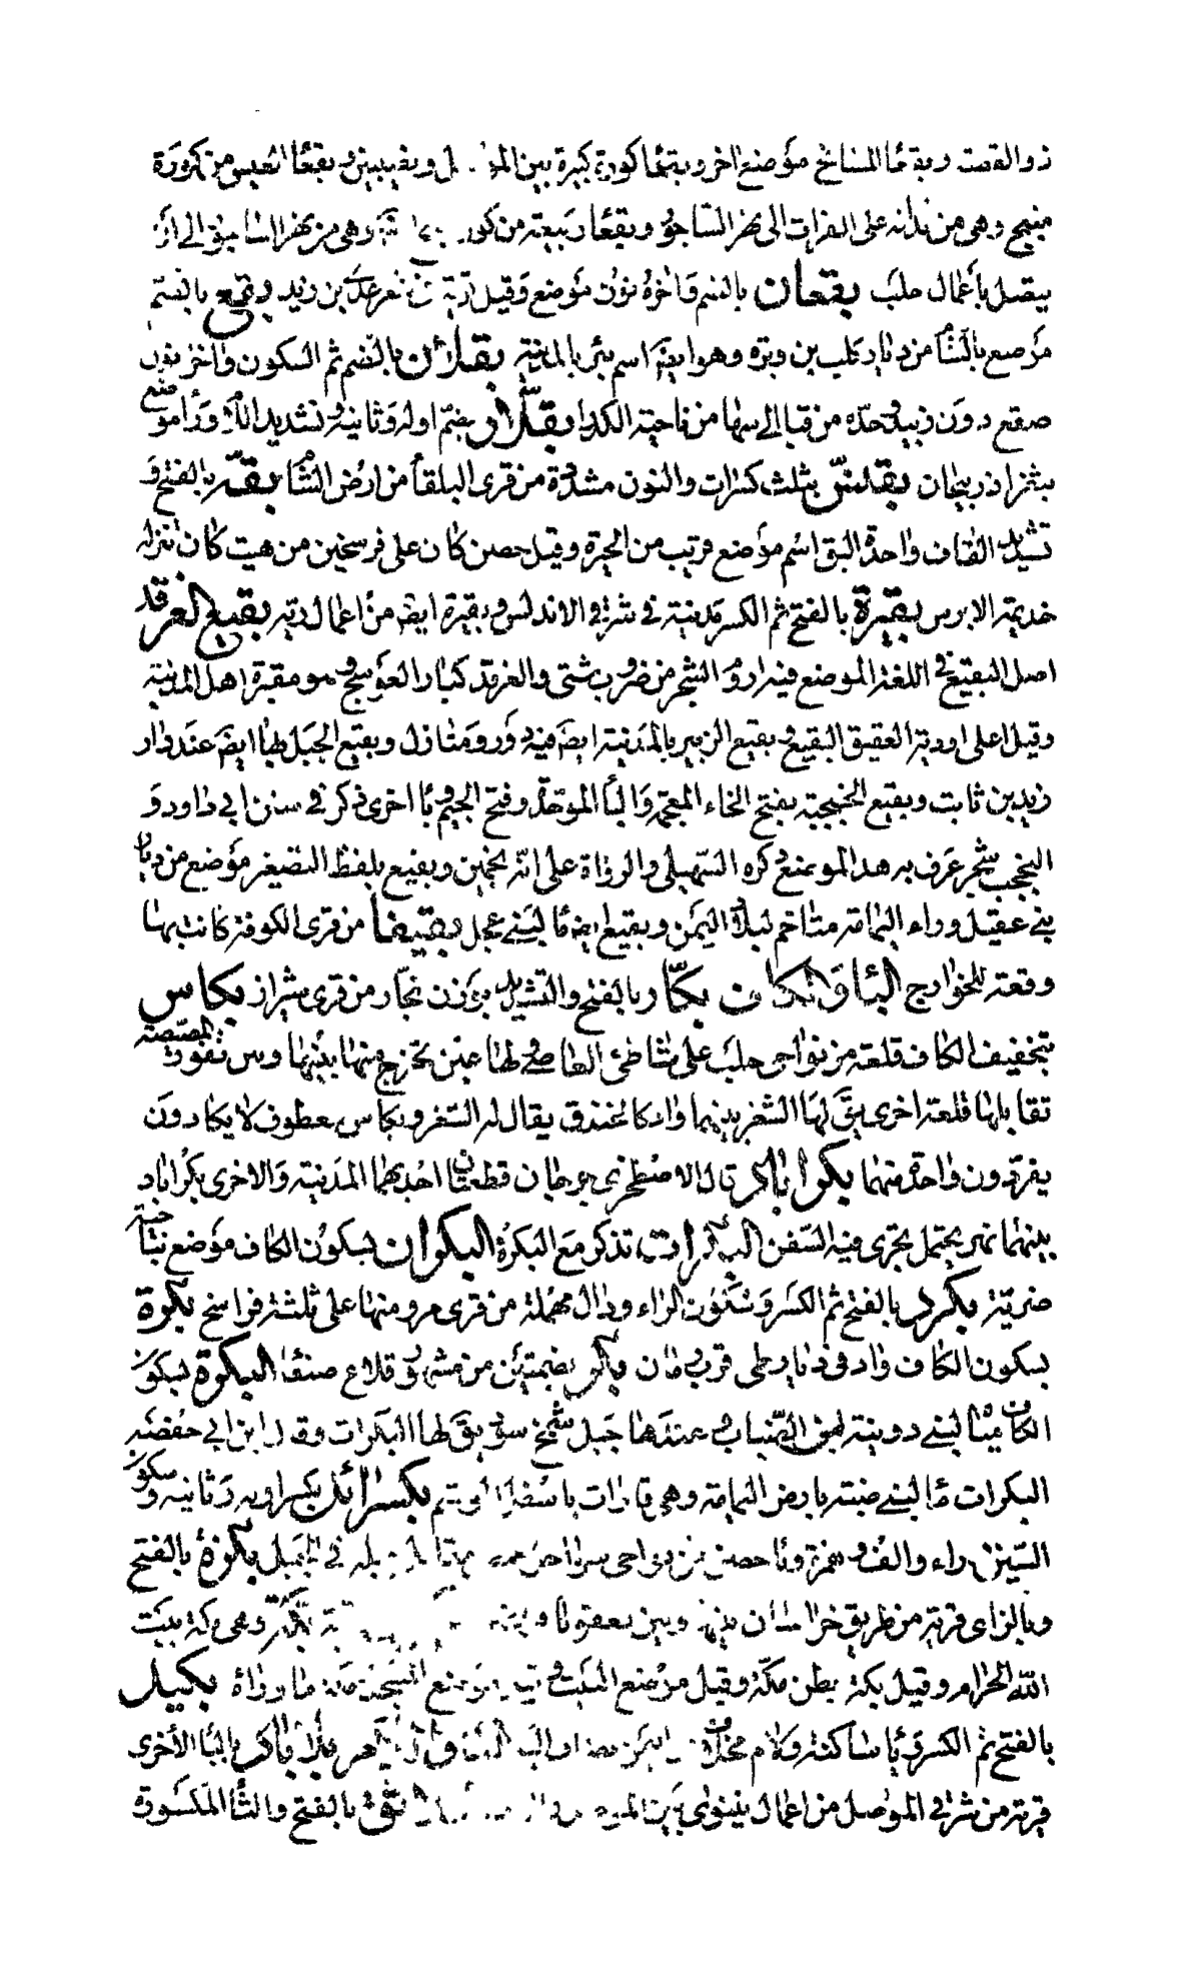 ذو القصة وبقعا المسالخ موضع اخر وبقعا كورة كبيرة بين الموصل ونصيبين وبقعا العيس من كورة
منبج وهى من بدانه على الفرات الى نهر الساجور وبقعا ربيعة من كور منبج وهى من نهر الساجور الى ان
يتصل باعمال حلب بقعان بالضم واخره نون موضع وقيل قرية فى شعر عدى بن زيد وبقع بالضم
موضع بالشام من ديار كلب بن وبرة وهو ايضا اسم بئر بالمدينة بقلان بالضم ثم السكون واخره نون
صقع دون زبيد وحده من قبا الى سهام من ناحية الكدرا بقلار بضم اوله وثانيه وتشديد اللام ورا موضع
بثغر اذربيجان بقلنس بثلث كسرات والنون مشددة من قرى البلقا من ارض الشام بقة بالفتح و
تشديد القاف واحدة البق اسم موضع قريب من الحيرة وقيل حصن كان على فرسخين من هيت كان ينزله
خديمة الابرس بقيرة بالفتح ثم الكسر مدينة فى شرقى الاندلس وبقيرة ايضا من اعمال ريه بقيع الغرقد
اصل البقيع فى اللغة الموضع فيه اروم الشجر من ضروب شتى والغرقد كبار العوسج وهو مقبرة اهل المدينة
وقيل اعلى اودية العقيق البقيع وبقيع الزبير بالمدينة ايضا فيه دور ومنازل وبقيع الجبل بها ايضا عند دار
زيد بن ثابت وبقيع الخبجبة بفتح الخاء المعجمة والبا الموحدة وفتح الجيم وبا اخرى ذكر فى سنن ابى داود و
الخبجب شجر عرف به هذا الموضع ذكره السهيلى والرواة على انه بجيمين وبقيع بلفظ التصغير موضع من ديار
بنى عقيل وراء اليمامة متاخم لبلاد اليمن وبقيع ايضا ما لبنى عجل بقيقا من قرى الكوفة كانت بها
وقعة للخوارج البا والكاف بكار بالفتح والتشديد بوزن نجار من قرى شيراز بكاس
بتخفيف الكاف قلعة من نواحى حلب على شاطئ العاصى لها عين تخرج منها بينها وبين ثغور المصيصة
تقابلها قلعة اخرى يق لها الشغر بينهما واد كالخندق يقال له الشغر وبكاس معطوف لا يكادون
يفردون واحدة منهما بكراباد قال الاصطخرى جرجان قطعتان احديهما المدينة والاخرى بكراباد
بينهما نهر يحتمل يجرى فيه السفن البكرات تذكر مع البكرة البكران بسكون الكاف موضع بناحية
ضرية بكرد بالفتح ثم الكسر وسكون الراء ودال مهملة من قرى مرو منها على ثلثة فراسخ بكرة
بسكون الكاف واد فى ديار طى قرب مان بكر بضمتين من مشهور قلاع صنعا البكرة بسكون
الكاف ما لبنى ذويبة من الضباب وعندها جبل شمخ سود يق لها البكرات وقال ابن ابى حفصة
البكرات ما لبنى ضبة بارض اليمامة وهى قارات باسفل الوشم بكسرائل بكسر اوله وثانيه وسكون
السين وراء والف وهمزة ولا حصن من نواحى سواحل حمص مقابل جبله فى الجبل بكزة بالفتح
وبالزاى قرية من طريق خراسان بينها وبين بعقوبا بكة وهى مكة بيت
الله الحرام وقيل بكة بطن مكة وقيل موضع البيت وقيل موضع المسجد مكة ما وراه بكيل
بالفتح ثم الكسر ويا ساكنة ولام مخلاف باليمن البا واللام بلاباذ بالبا الاخرى
قرية من شرقى الموصل من اعمال نينوى بين بلاثق بالفتح والثا المكسورة